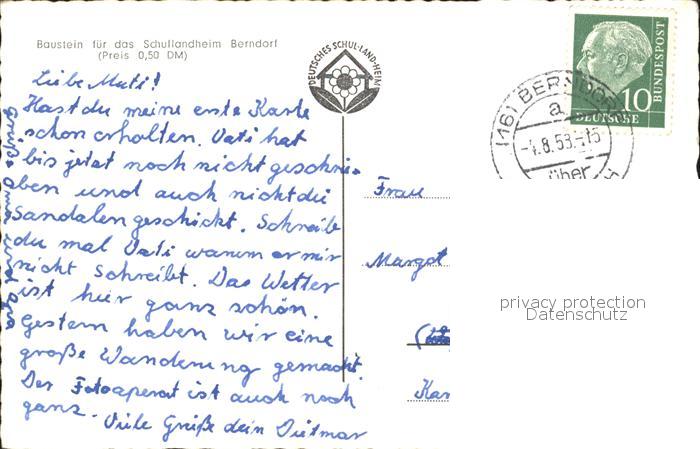 Baustein für das Schullandheim Berndorf
(Preis 0,50 DM)
DEUTSCHES SCHUL-LAND-HEIM
Liebe Muti!
Hast du meine erste Karte
schon erholten. Vati hat
bis jetzt noch nicht geschrie-
ben und auch nicht die
Sandalen geschickt. Schreibe
du mal Vati warum er mir
nicht schreibt. Das Wetter
ist hier ganz schön.
Gestern haben wir eine
große Wanderung gemacht.
Der Fotoaperat ist auch noch
ganz. Viele Grüße dein Dietmar
Grüße Oma und Opa
Frau
Margot
Kar
(16) BERNDORF
a
-4.8.58.-15
über
10
DEUTSCHE
BUNDESPOST
privacy protection
Datenschutz